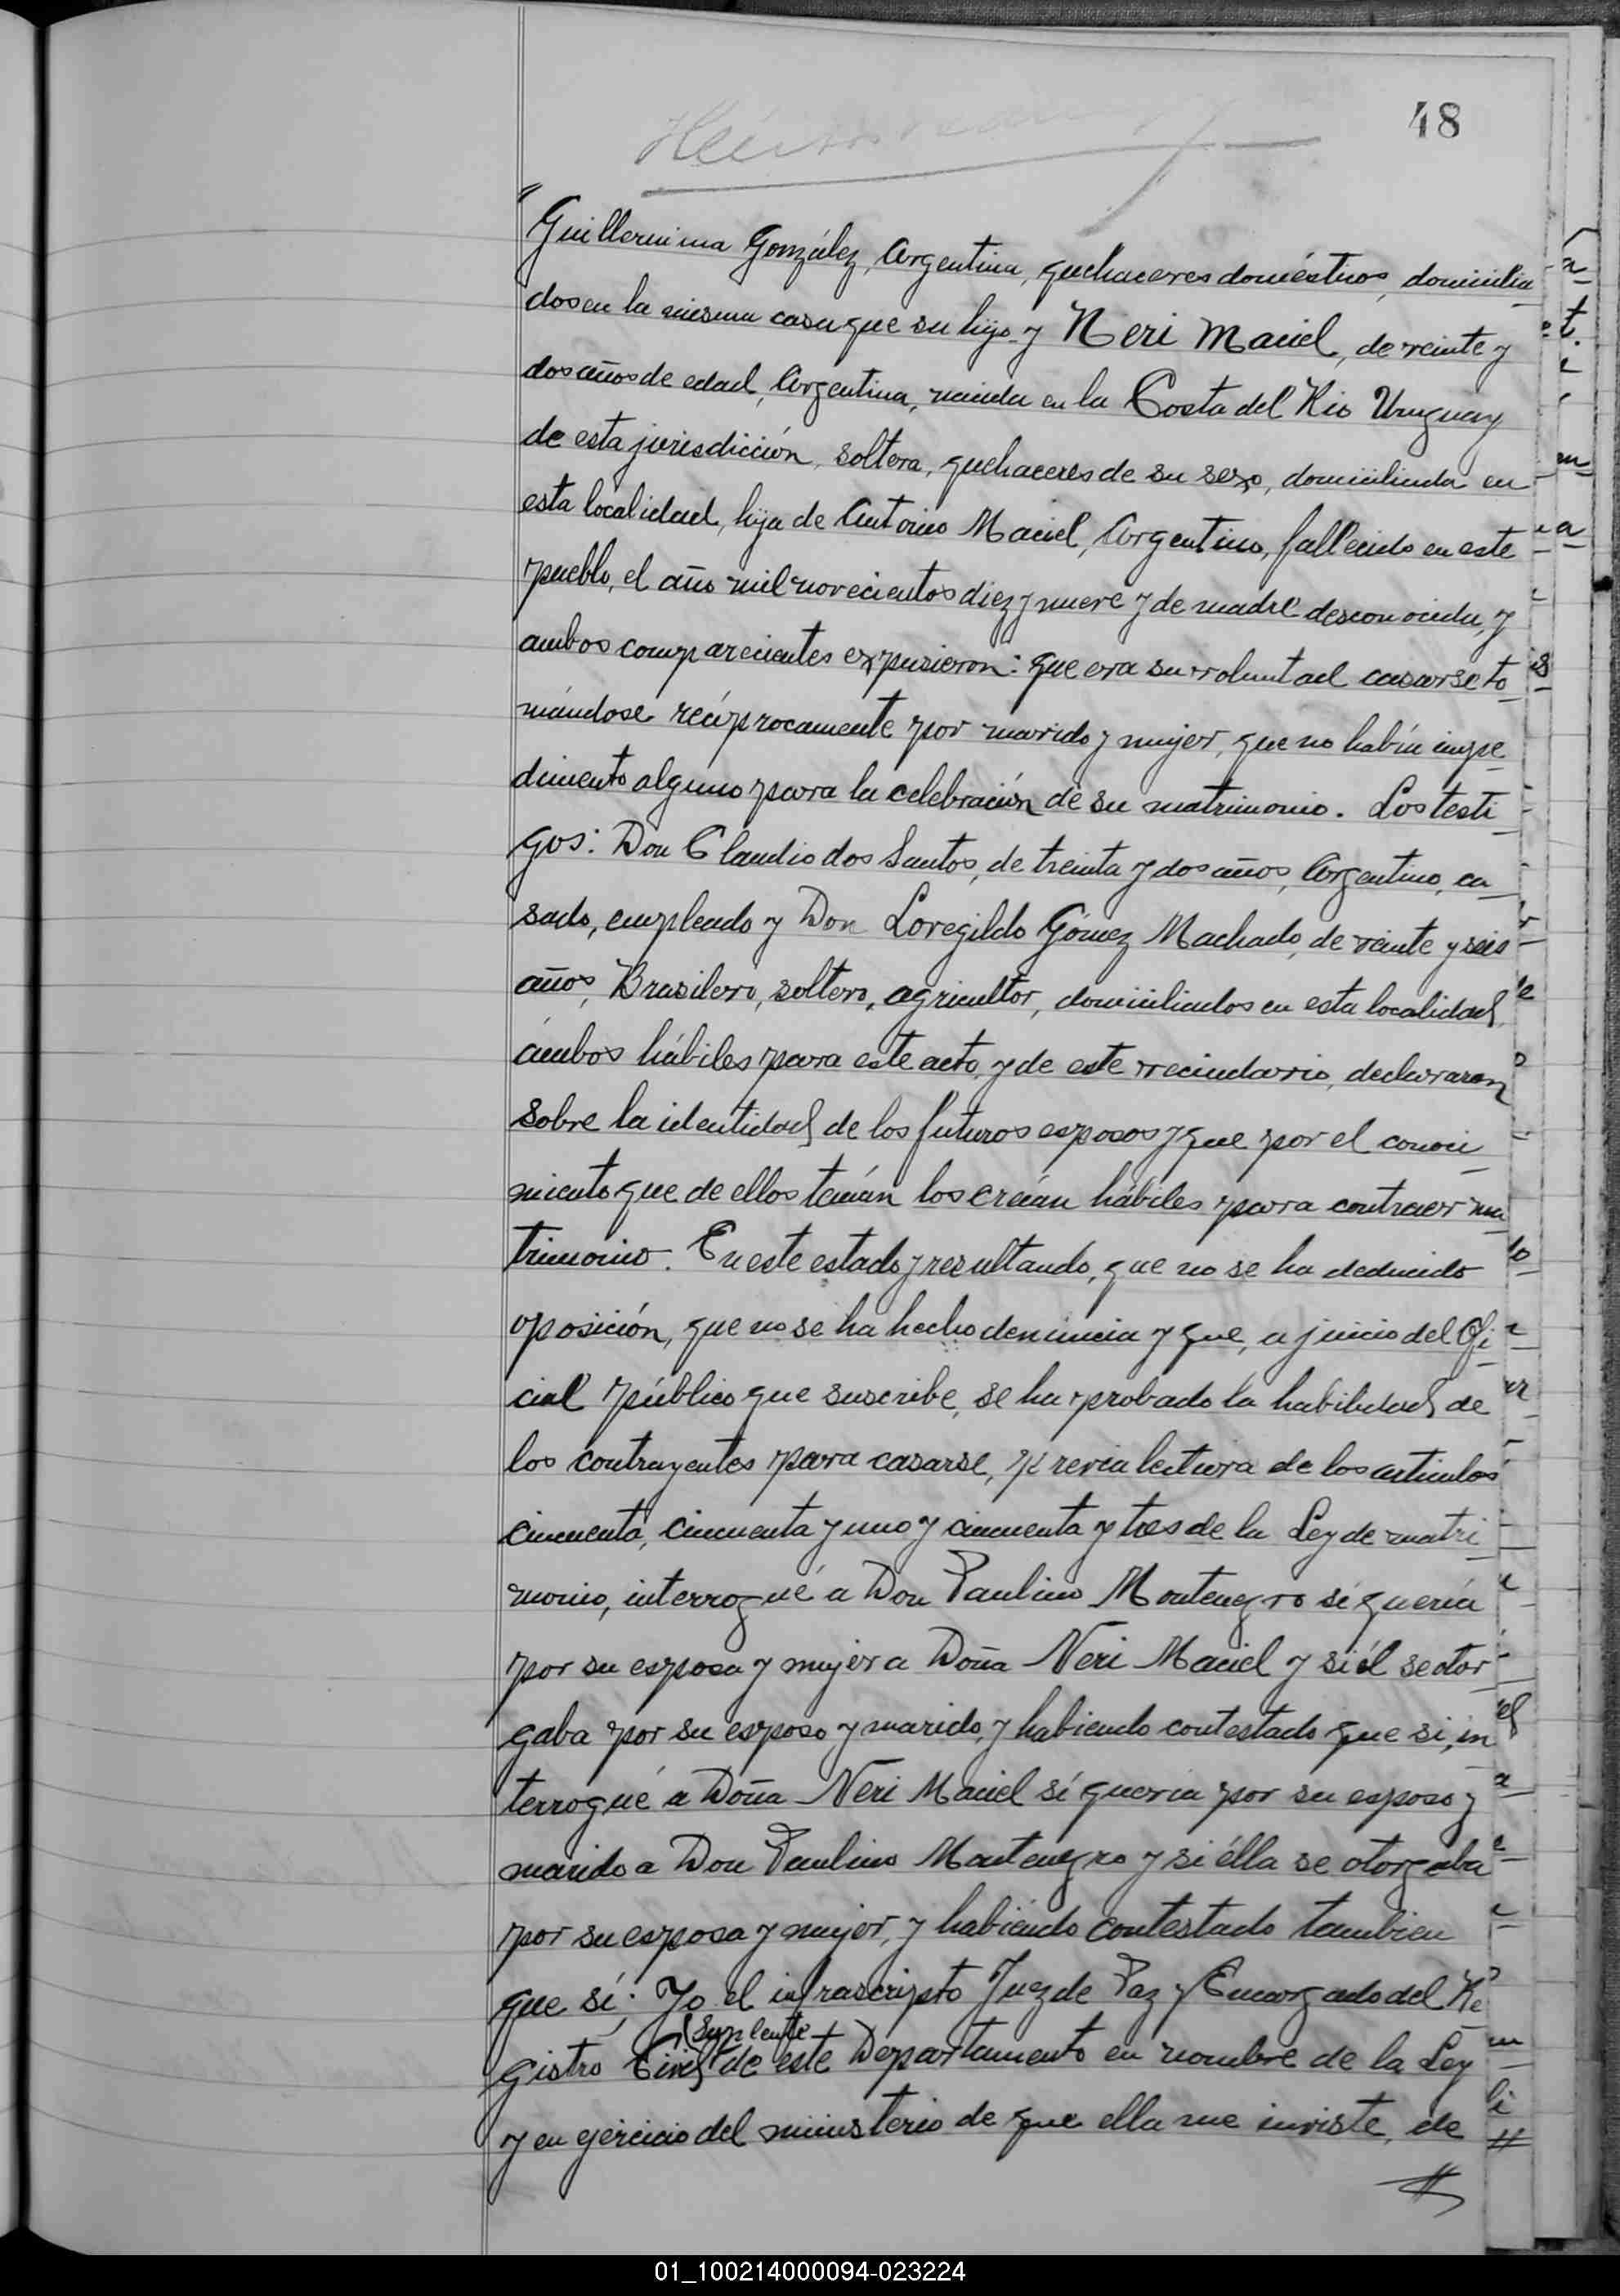 48
Guillermina González, Argentina, quehaceres domésticos, domicilia
dos en la misma casa que su hijo y Neri Maciel, de veinte y
dos años de edad, Argentina, nacida en la Costa del Rio Uruguay
de esta jurisdicción, soltera, quehaceres de su sexo, domiciliada en
esta localidad, hija de Antonio Maciel, Argentino, fallecido en este
pueblo, el año mil novecientos diez y nueve y de madre desconocida, y
ambos comparecientes expusieron: que era su voluntad casarse to
mándose recíprocamente por marido y mujer, que no había impe
dimento alguno para la celebración de su matrimonio. Los testi
gos: Don Claudio dos Santos, de treinta y dos años, Argentino, ca
sado, empleado y Don Loregildo Gómez Machado, de veinte y seis
años, Brasilero, soltero, agricultor, domiciliados en esta localidad,
ámbos hábiles para este acto, y de este vecindario, declararon
sobre la identidad de los futuros esposos y que por el conoci
miento que de ellos tenían los creían hábiles para contraer ma
trimonio. En este estado y resultando, que no se ha deducido
oposición, que no se ha hecho denuncia y que, a juicio del Ofi
cial público que suscribe, se ha probado la habilidad de
los contrayentes para casarse, previa lectura de los artículos
cincuenta, cincuenta y uno y cincuenta y tres de la Ley de matri
monio, interrogué a Don Paulino Montenegro si quería
por su esposa y mujer a Doña Neri Maciel y si él se otor
gaba por su esposo y marido, y habiendo contestado que si, in
terrogué a Doña Neri Maciel sí queria por su esposo y
marido a Don Paulino Montenegro y si élla se otorgaba
por su esposa y mujer, y habiendo contestado tambien
que sí; Yo el infrascripto Juez de Paz y Encargado del Re
(Suplente
gistro Civil) de este Departamento en nombre de la Ley
y en ejercicio del ministerio de que ella me inviste, de
01_100214000094-023224